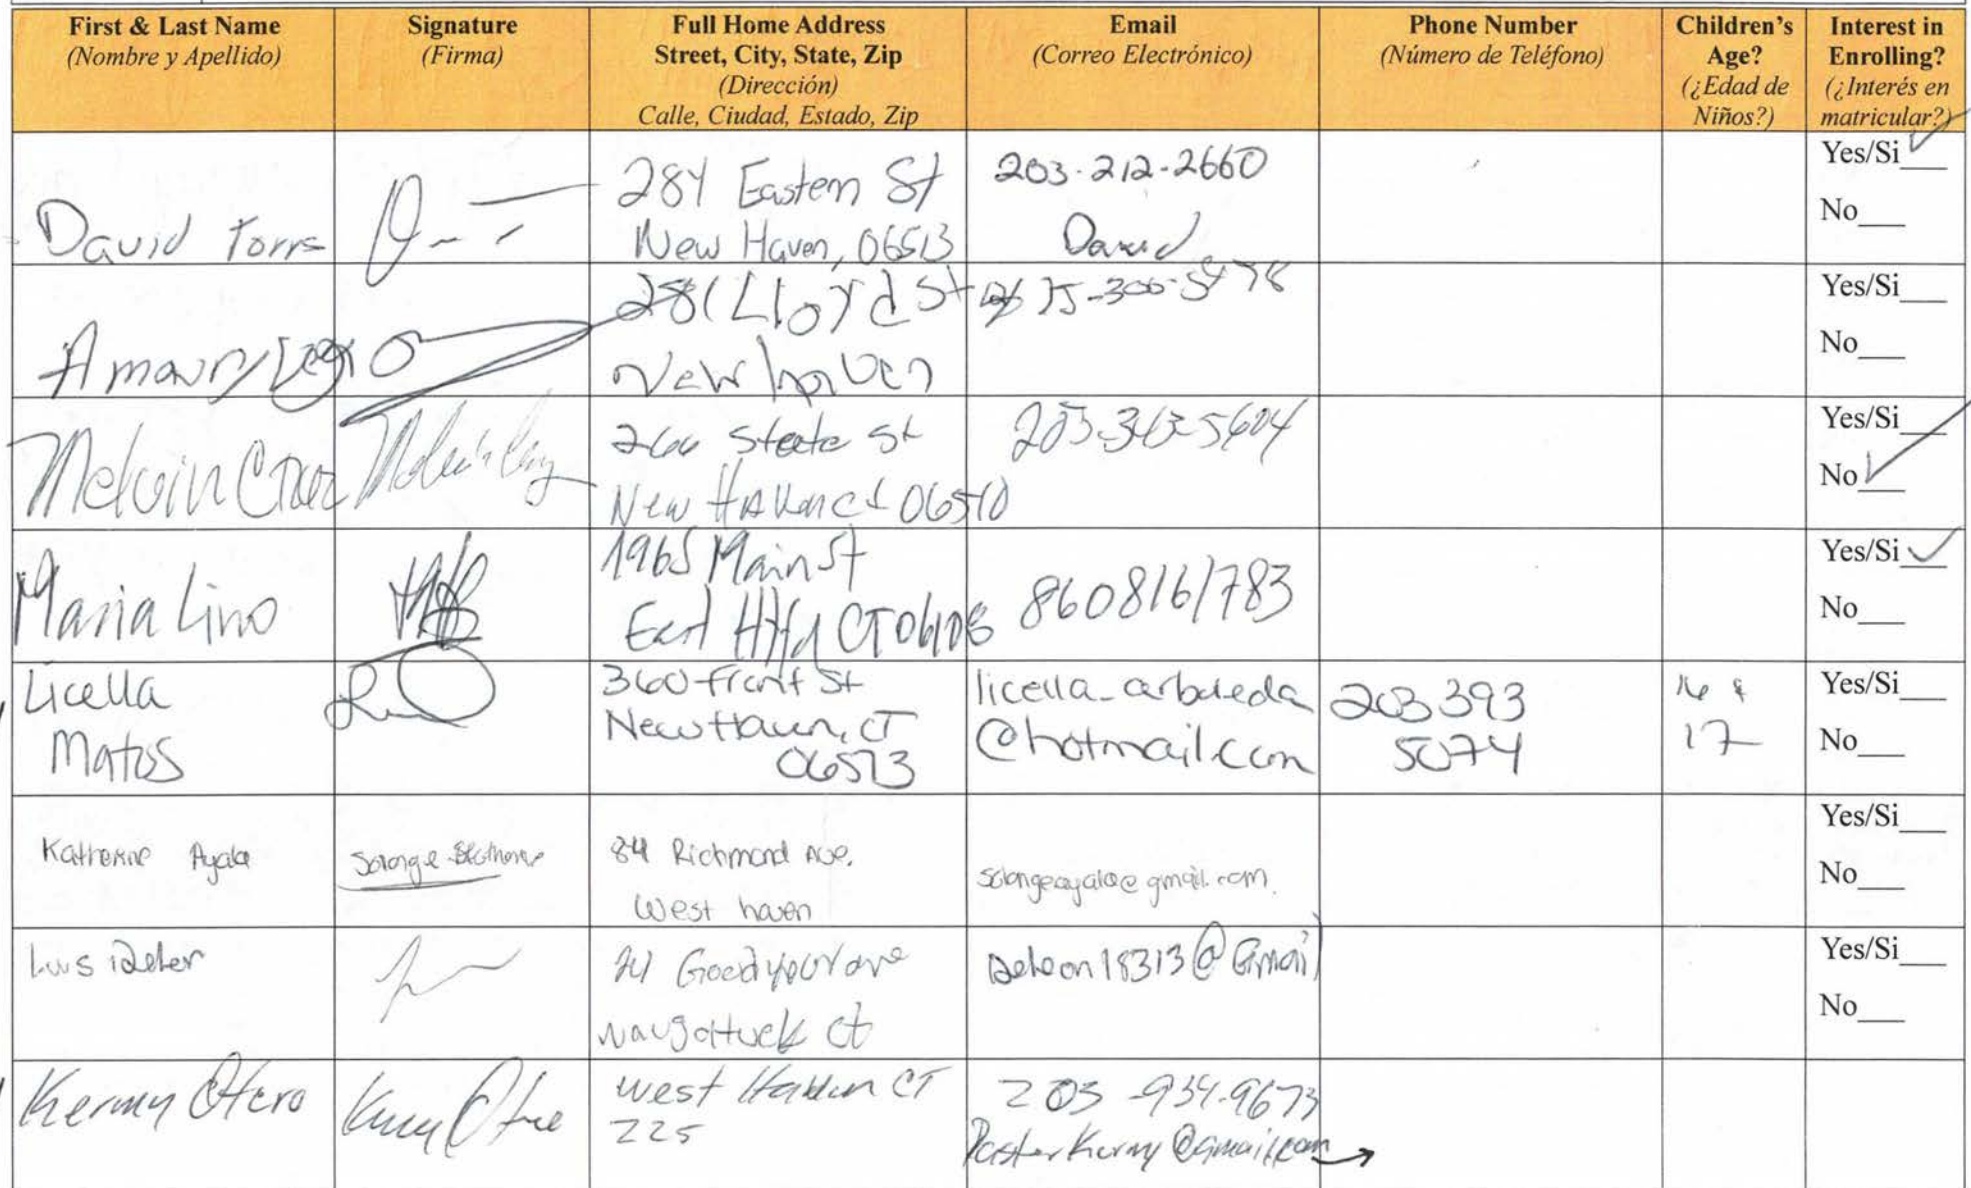 First & Last Name
(Nombre y Apellido)
Signature
(Firma)
Full Home Address
Street, City, State, Zip
(Dirección)
Calle, Ciudad, Estado, Zip
Email
(Correo Electrónico)
Phone Number
(Número de Teléfono)
Children's
Age?
(¿Edad de
Niños?)
Interest in
Enrolling?
(¿Interés en
matricular?)
David Torrs
284 Eastern St
New Haven, 06513
203-212-2660
David
Yes/Si ✓
No___
Amaury
Lloyd St
New haven
Yes/Si___
No___
Melvin Cruz
266 State St
New Haven Ct 06510
Yes/Si___
No ✓
Maria Lino
1965 Main St
East Htfd CT 06108
8608161783
Yes/Si ✓
No___
Licella
Matos
360 Front St
New Haven, CT
06513
licella_arboleda
@hotmail.com
203 393
5074
16 &
17
Yes/Si___
No___
Katherine Ayala
84 Richmond Ave.
West haven
solangeayala@gmail.com
Yes/Si___
No___
Luis
Goodyear ave
naugatuck ct
Deleon18313@Gmail
Yes/Si___
No___
Kermy Otero
West Haven CT
225
203-934-9673
PastorKermy@Gmail.com →